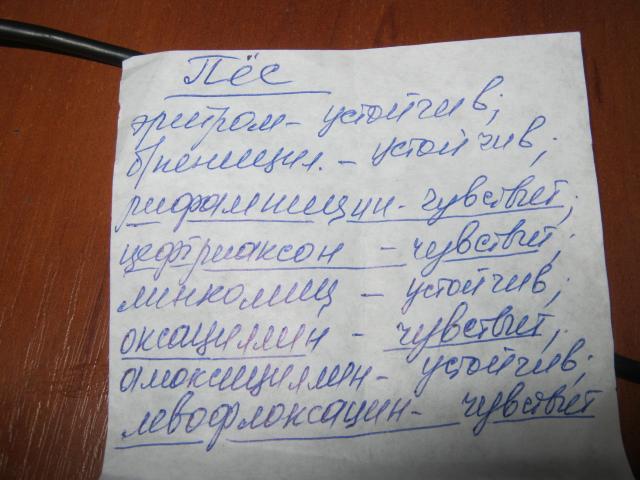 Пёс
эритром- устойчив;
б/пеницил. - устойчив;
рифампицин- чувствит;
цефтриаксон - чувствит;
линкомиц - устойчив;
оксациллин - чувствит;
амоксициллин- устойчив;
левофлоксацин- чувствит